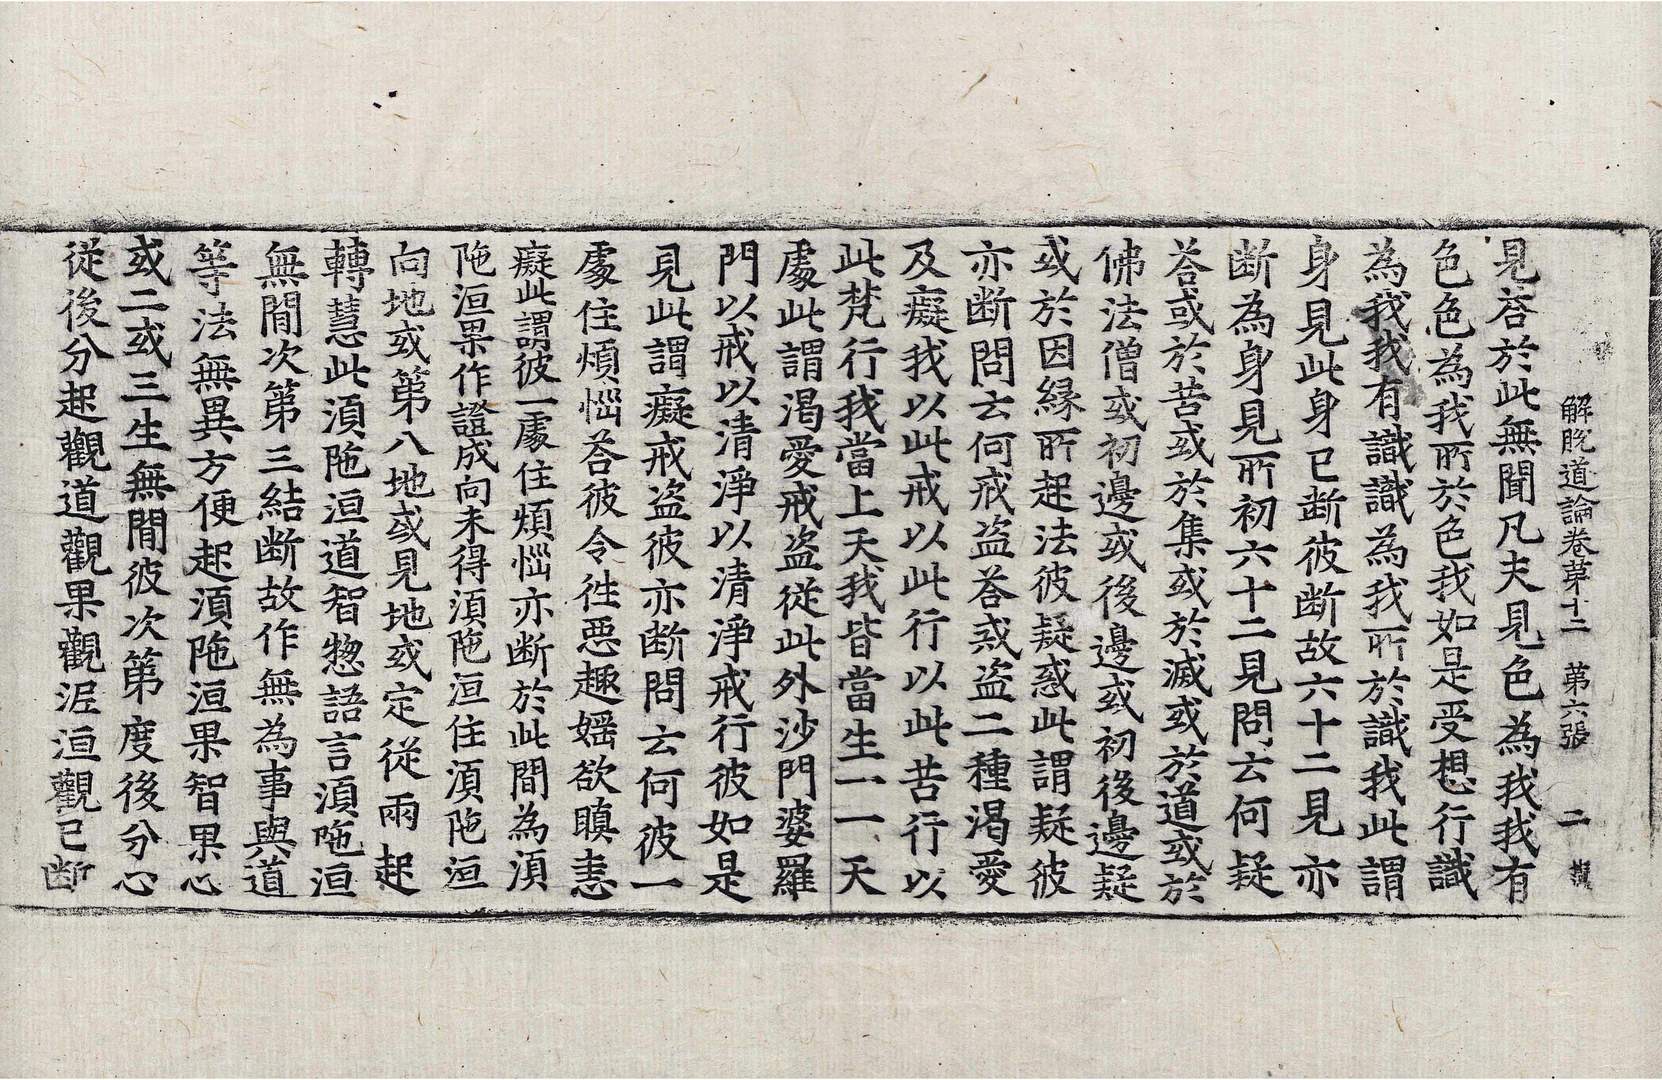 解脫道論卷苐十二　第六張　二
見荅於此無聞凡夫見色為我我有
色色為我所於色我如是受想行識
為我我有識識為我所於識我此謂
身見此身已断彼断故六十二見亦
断為身見所初六十二見問云何疑
荅或於苦或於集或於滅或於道或於
佛法僧或初邊或後邊或初後邊疑
或於因縁所起法彼疑惑此謂疑彼
亦断問云何戒盗荅戒盗二種渴愛
及癡我以此戒以此行以此苦行以
此梵行我當上天我皆當生一一天
處此謂渴愛戒盗從此外沙門婆羅
門以戒以清淨以清淨戒行彼如是
見此謂癡戒盗彼亦断問云何彼一
處住煩惱荅彼令徃惡趣婬欲瞋恚
癡此謂彼一處住煩惱亦断於此間為湏
陁洹果作證成向未得湏陁洹住湏陁洹
向地或第八地或見地或定從兩起
轉慧此湏陁洹道智惣語言湏陁洹
無間次第三結断故作無為事與道
等法無異方便起湏陁洹果智果心
或二或三生無間彼次第度後分心
從後分起觀道觀果觀涅洹觀已断